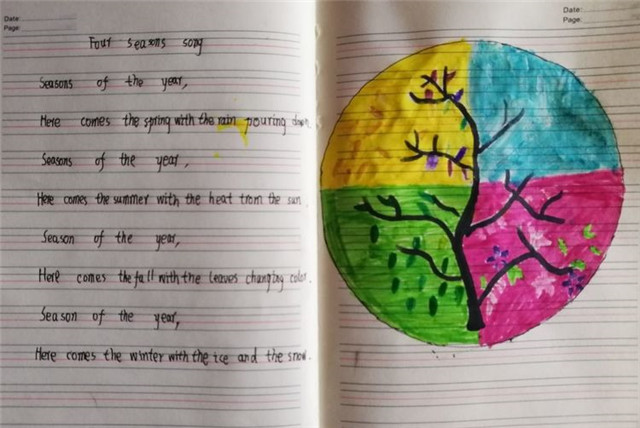 Date:
Page:
Four seasons song
Seasons of the year,
Here comes the spring with the rain pouring down
Seasons of the year,
Here comes the summer with the heat from the sun.
Season of the year,
Here comes the fall with the leaves changing color.
Season of the year,
Here comes the winter with the ice and the snow.
Date:
Page: